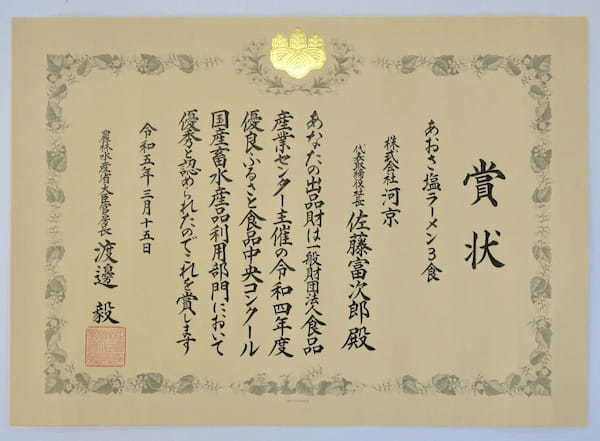 賞状
あおさ塩ラーメン3食
株式会社河京
代表取締役社長 佐藤富次郎 殿
あなたの出品財は一般財団法人食品
産業センター主催の令和四年度
優良ふるさと食品中央コンクール
国産畜水産品利用部門において
優秀と認められたのでこれを賞します
令和五年三月十五日
農林水産省大臣官房長 渡邊 毅